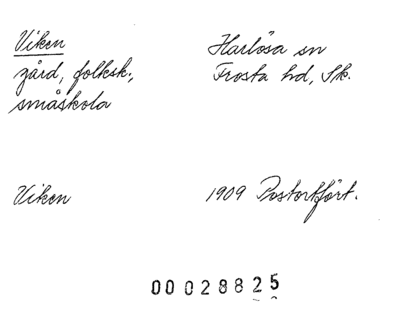 Viken
Harlösa sn
gård, folksk.,
Frosta hd, Sk.
småskola
Viken
1909 Postortfört.
00028825